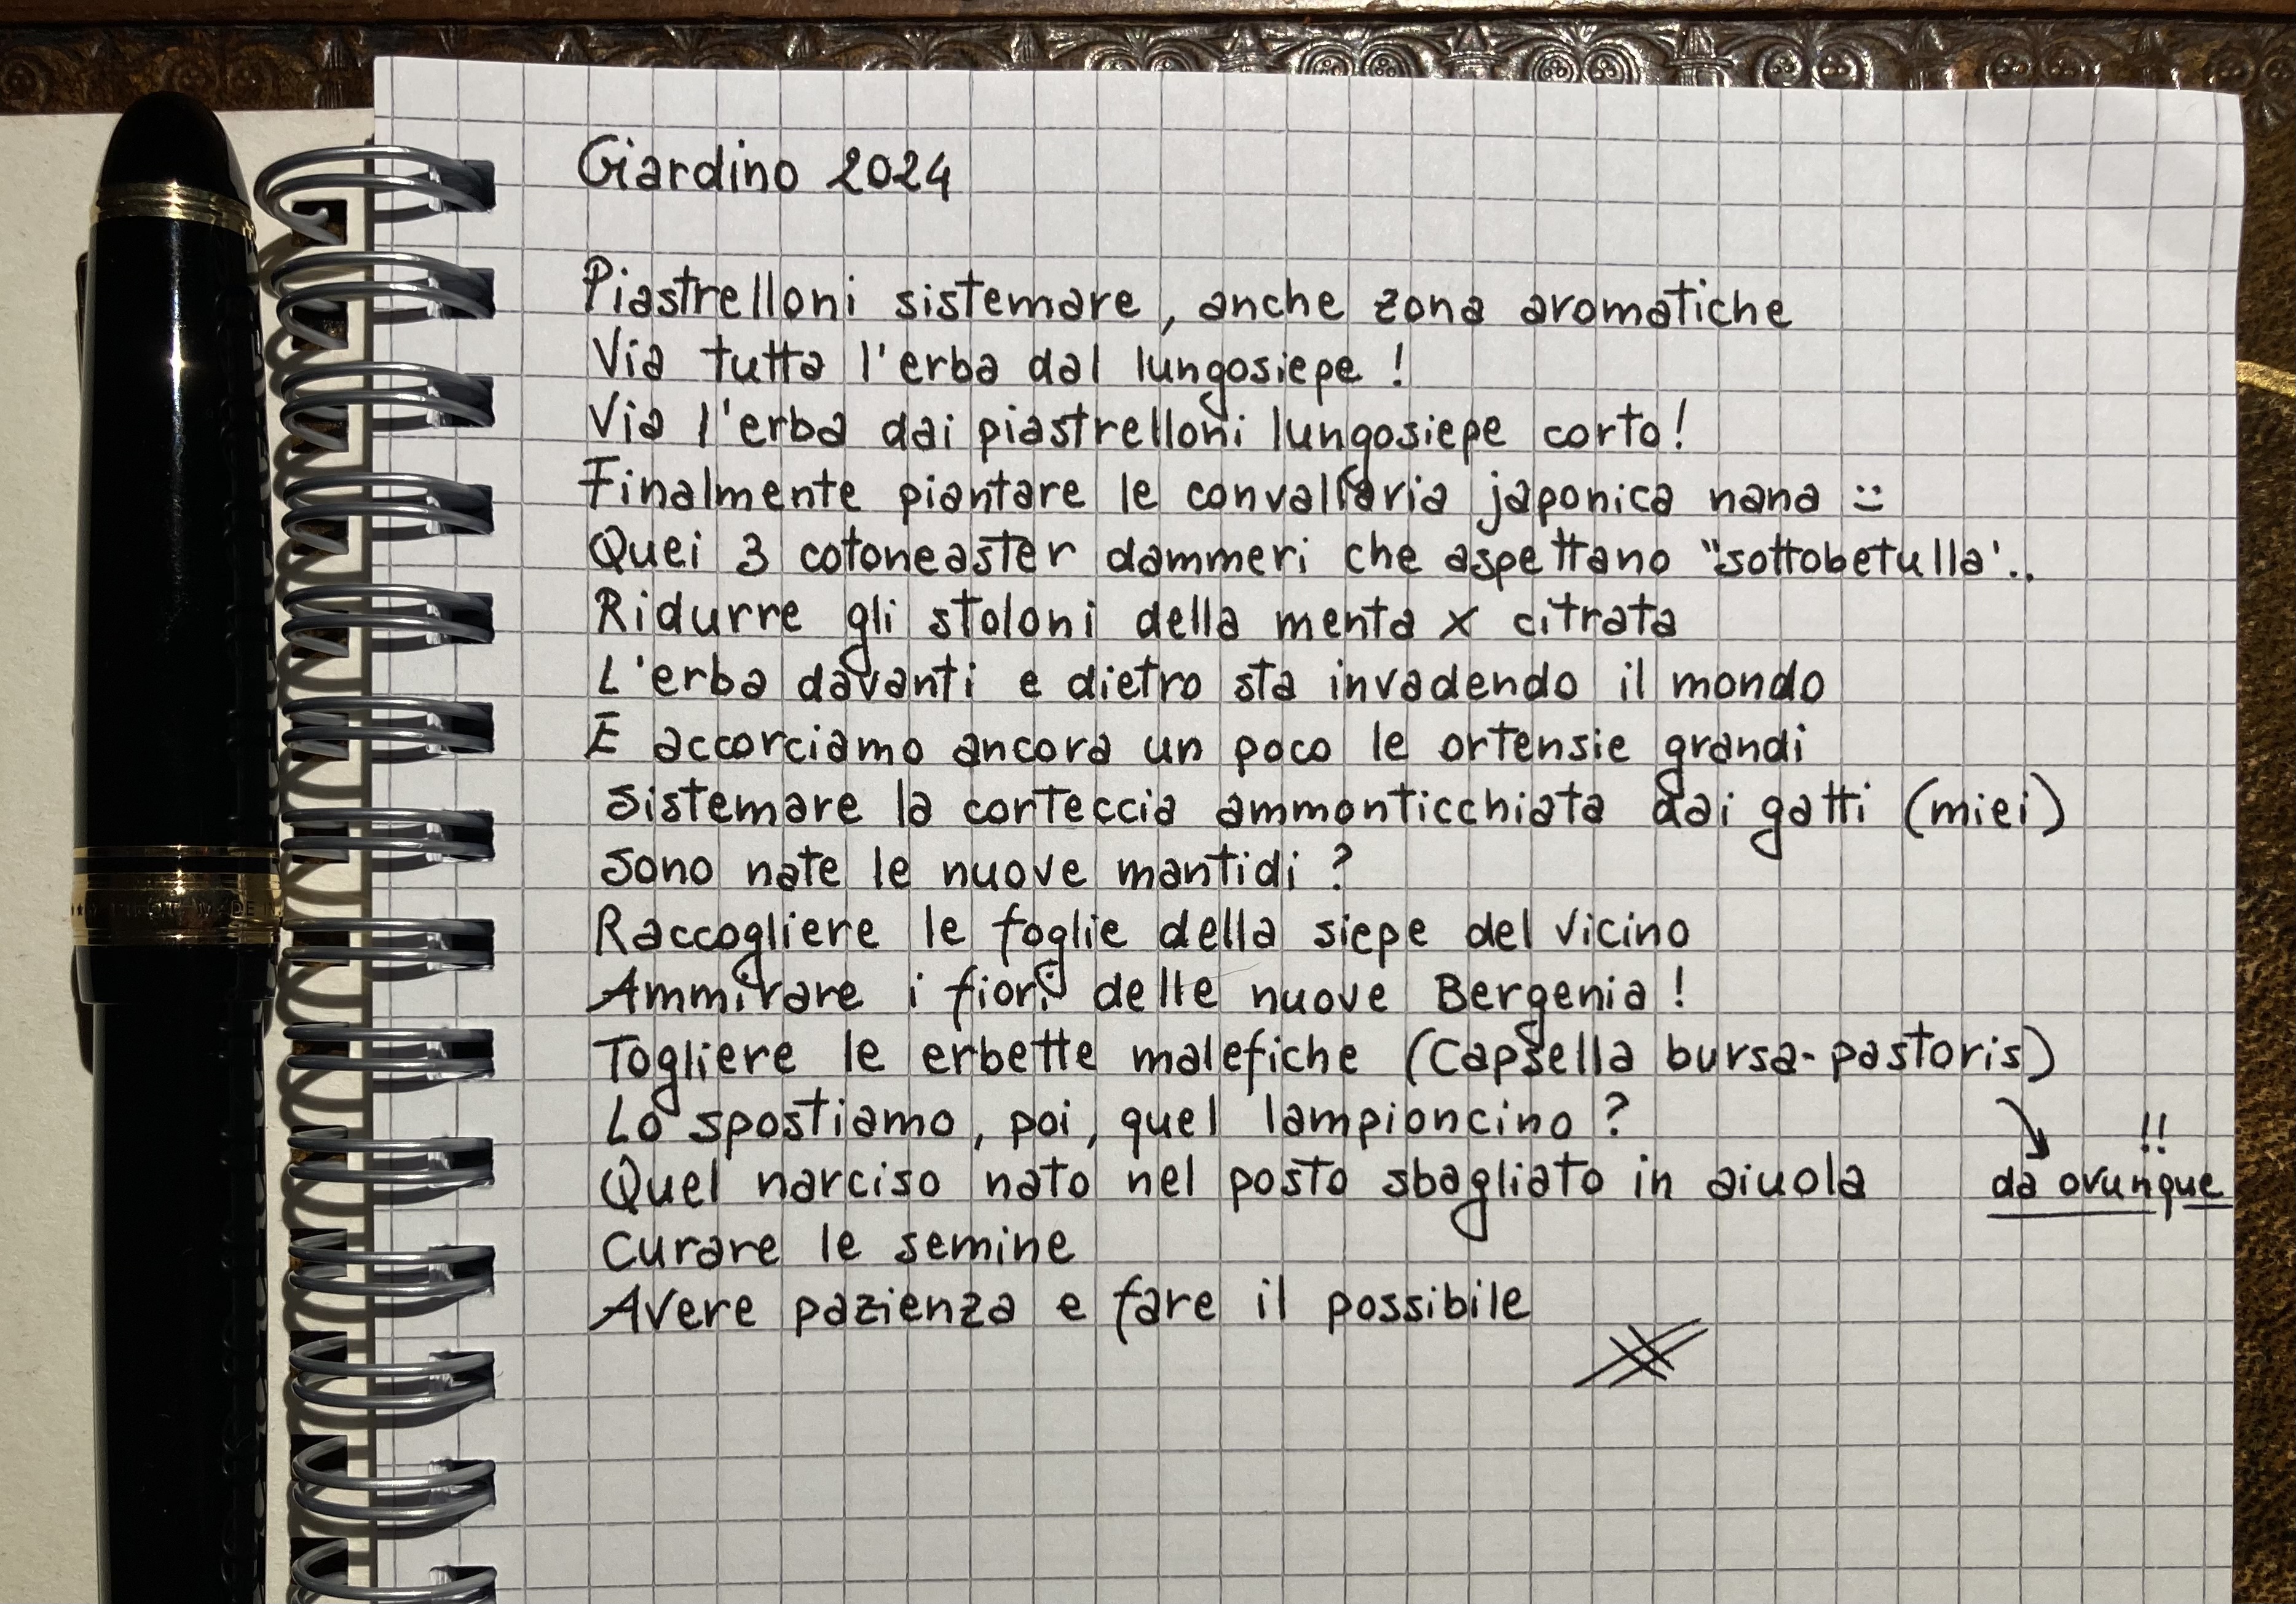 Giardino 2024
Piastrelloni sistemare, anche zona aromatiche
Via tutta l'erba dal lungosiepe!
Via l'erba dai piastrelloni lungosiepe corto!
Finalmente piantare le convallaria japonica nana :)
Quei 3 cotoneaster dammeri che aspettano "sottobetulla"..
Ridurre gli stoloni della menta x citrata
L'erba davanti e dietro sta invadendo il mondo
E accorciamo ancora un poco le ortensie grandi
Sistemare la corteccia ammonticchiata dai gatti (miei)
Sono nate le nuove mantidi?
Raccogliere le foglie della siepe del vicino
Ammirare i fiori delle nuove Bergenia!
Togliere le erbette malefiche (Capsella bursa-pastoris)
Lo spostiamo, poi, quel lampioncino?
!!
Quel narciso nato nel posto sbagliato in aiuola
da ovunque
Curare le semine
Avere pazienza e fare il possibile